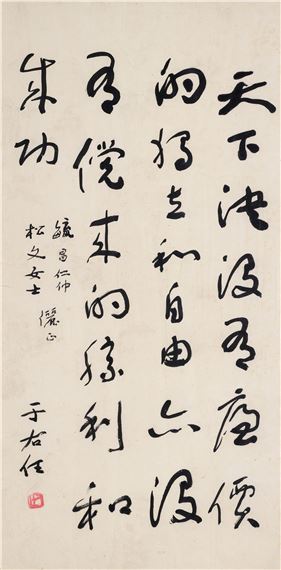 天下決沒有廉價
的獨立和自由亦沒
有僥來的勝利和
成功
毓昌仁仲
松文女士 儷正
于右任